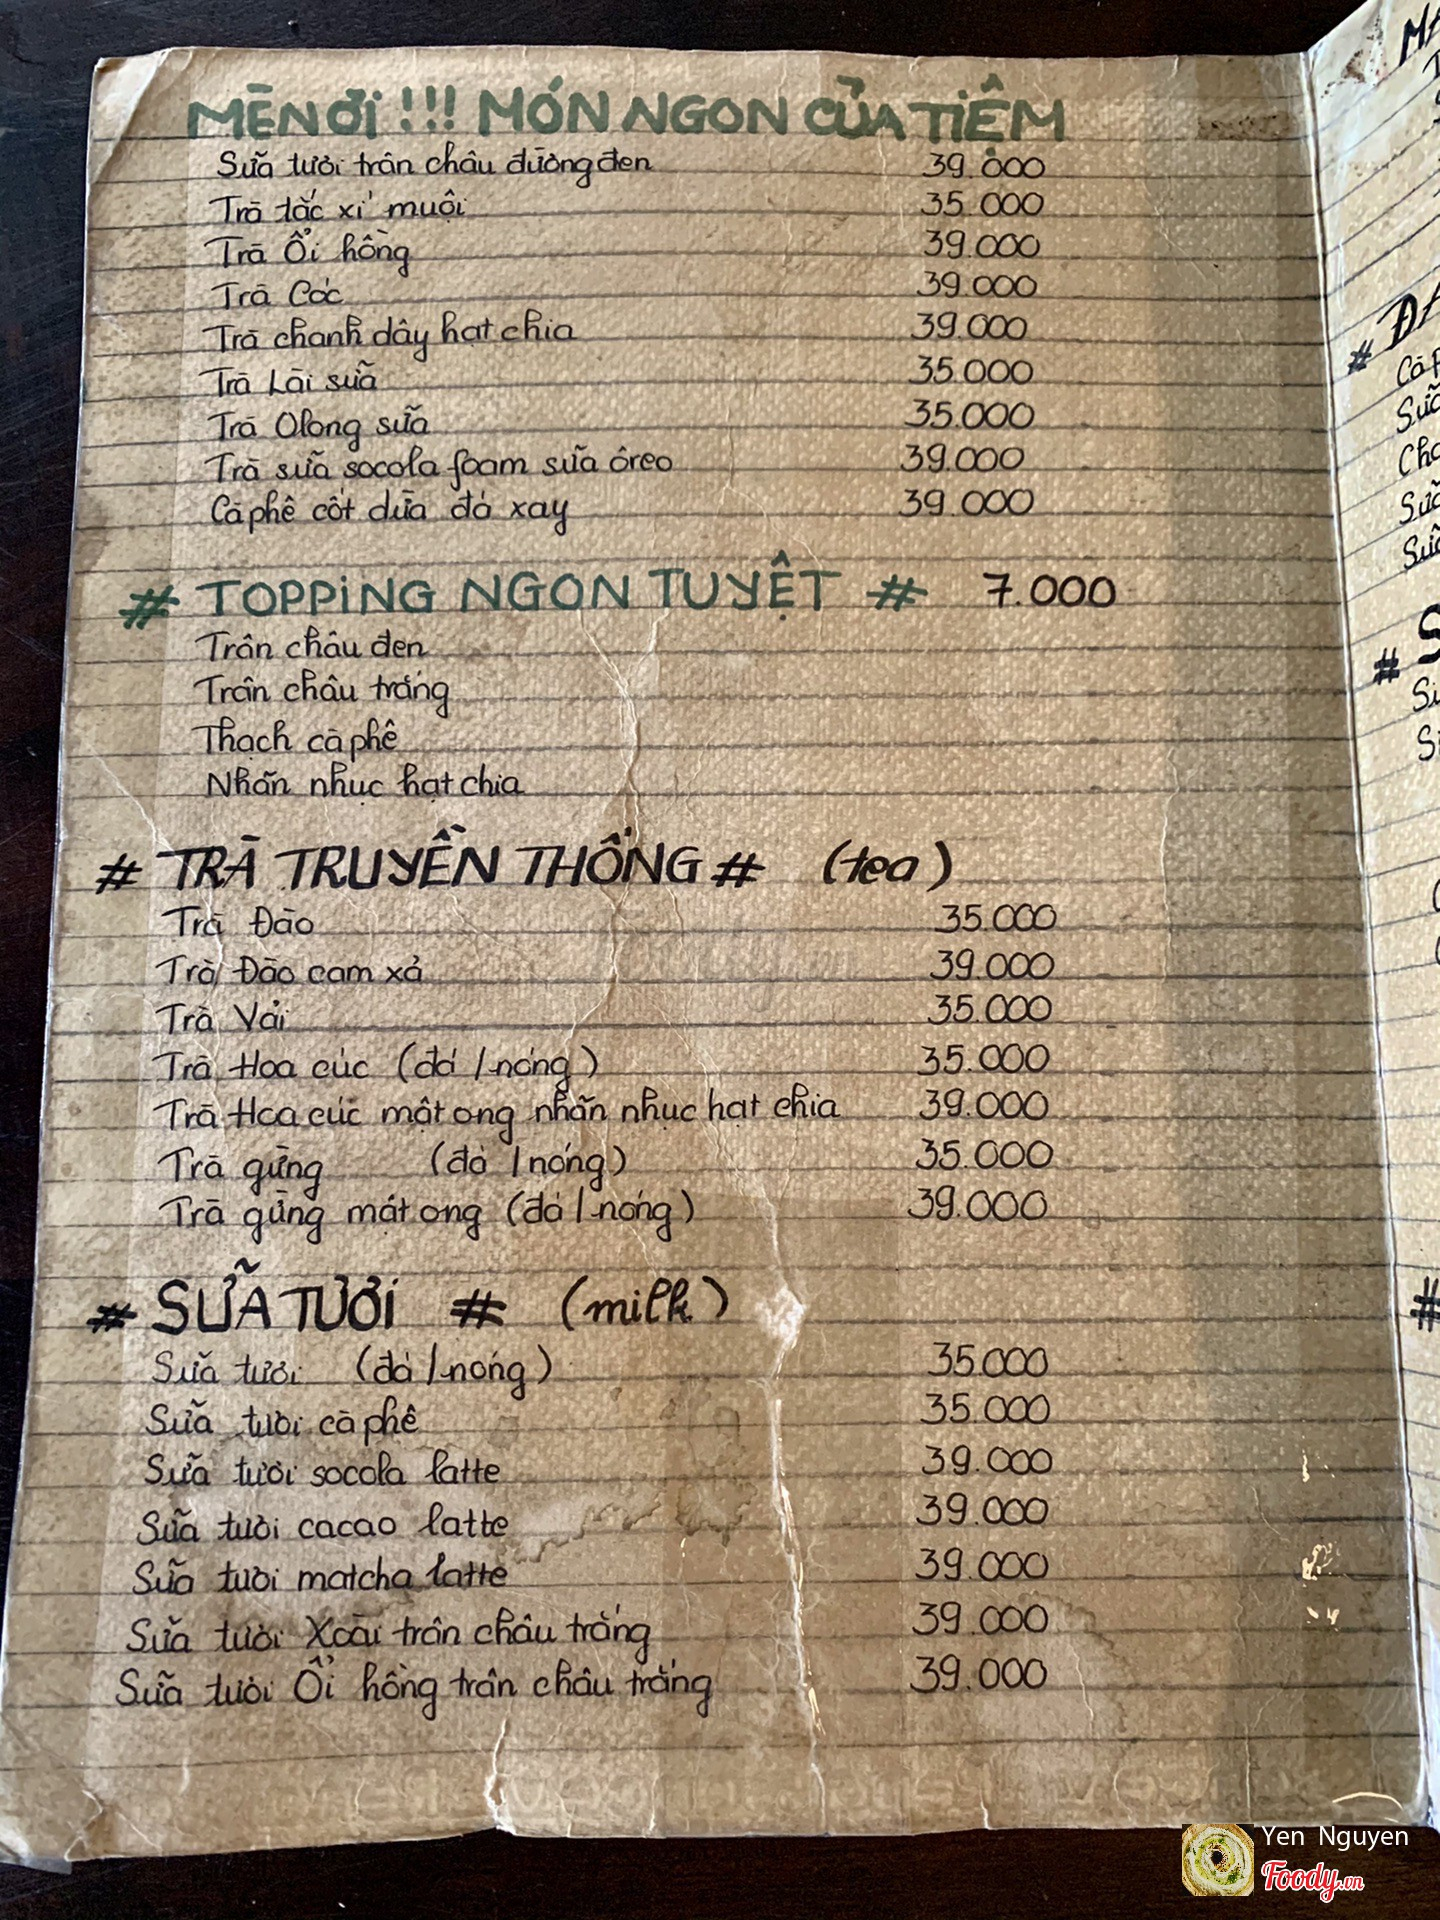 MÈN ƠI !!! MÓN NGON CỦA TIỆM
Sữa tươi trân châu đường đen 39.000
Trà tắc xí muội 35.000
Trà Ổi hồng 39.000
Trà Cóc 39.000
Trà chanh dây hạt chia 39.000
Trà Lài sữa 35.000
Trà Olong sữa 35.000
Trà sữa socola foam sữa ôreo 39.000
Cà phê cốt dừa đá xay 39.000
# TOPPING NGON TUYỆT # 7.000
Trân châu đen
Trân châu trắng
Thạch cà phê
Nhãn nhục hạt chia
# TRÀ TRUYỀN THỐNG # (tea)
Trà Đào 35.000
Trà Đào cam xả 39.000
Trà Vải 35.000
Trà Hoa cúc (đá / nóng) 35.000
Trà Hoa cúc mật ong nhãn nhục hạt chia 39.000
Trà gừng (đá / nóng) 35.000
Trà gừng mát ong (đá / nóng) 39.000
# SỮA TƯƠI # (milk)
Sữa tươi (đá / nóng) 35.000
Sữa tươi cà phê 35.000
Sữa tươi socola latte 39.000
Sữa tươi cacao latte 39.000
Sữa tươi matcha latte 39.000
Sữa tươi Xoài trân châu trắng 39.000
Sữa tươi Ổi hồng trân châu trắng 39.000
#
#
#
Yen Nguyen
Foody.vn